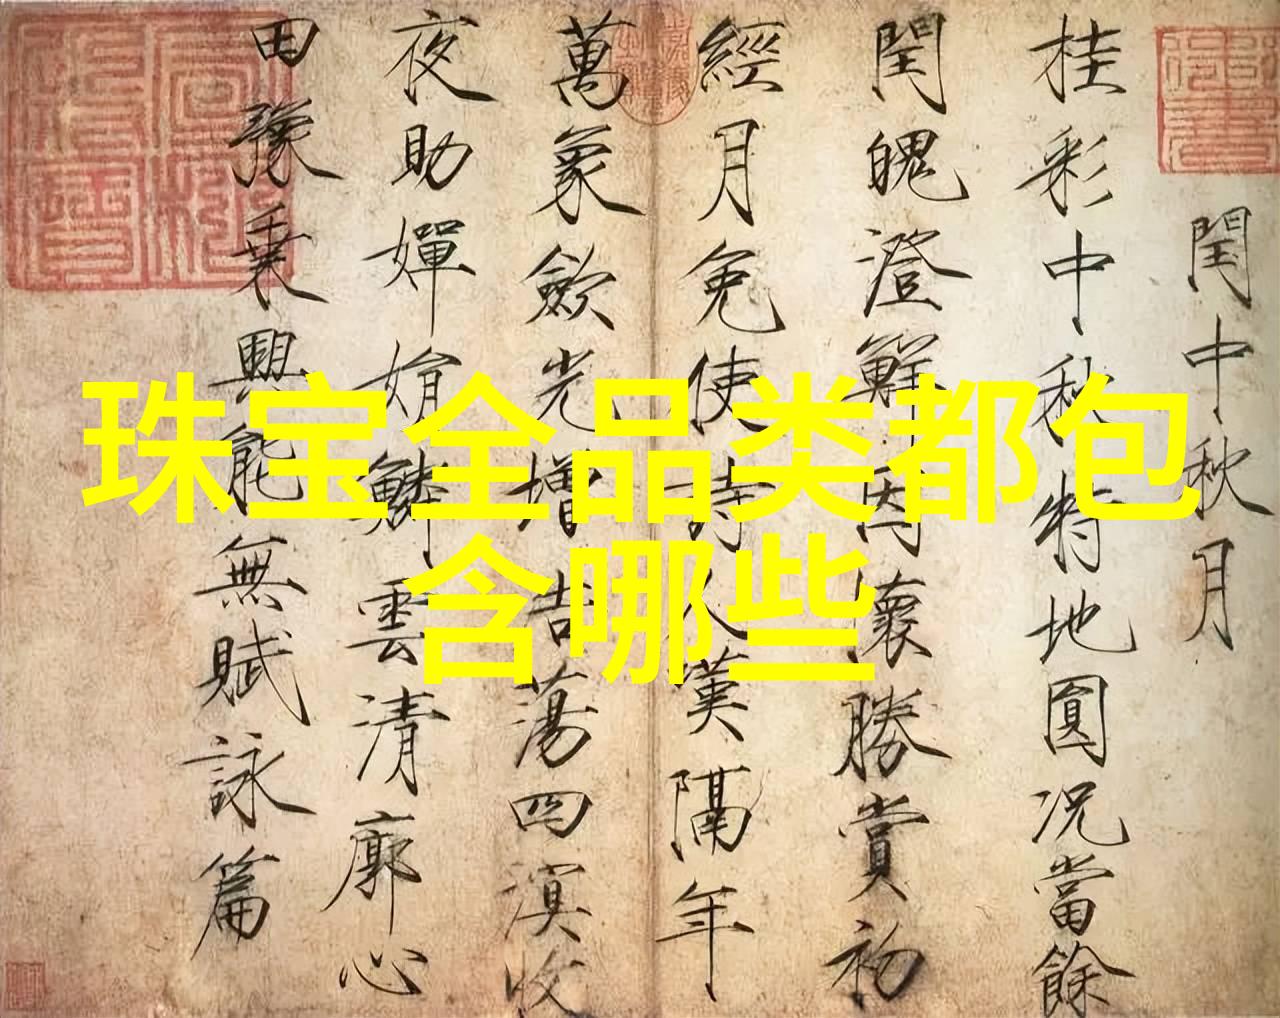 珠宝全品类都包
含哪些
閏中秋月
桂彩中秋特地圓況當餘
閏魄澄鮮因懷勝賞初
經月免使詩人嘆隔年
萬象歛光增浩蕩四溟收
夜助嬋娟鱗雲清廓心
田豫乗興能無賦詠篇